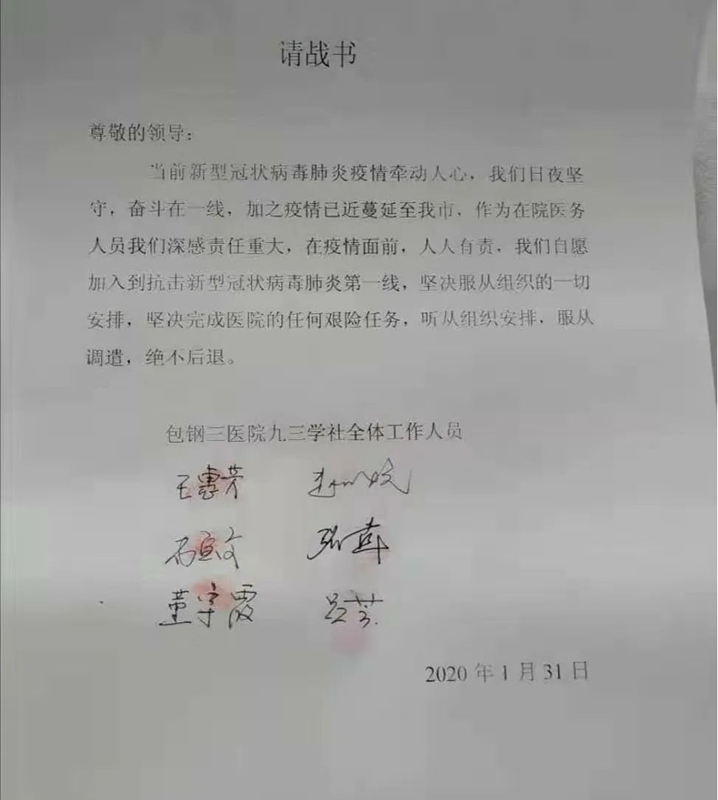 请战书
尊敬的领导：
当前新型冠状病毒肺炎疫情牵动人心，我们日夜坚
守，奋斗在一线，加之疫情已近蔓延至我市，作为在院医务
人员我们深感责任重大，在疫情面前，人人有责，我们自愿
加入到抗击新型冠状病毒肺炎第一线，坚决服从组织的一切
安排，坚决完成医院的任何艰险任务，听从组织安排，服从
调遣，绝不后退。
包钢三医院九三学社全体工作人员
王惠芳
董宇霞
2020 年 1 月 31 日